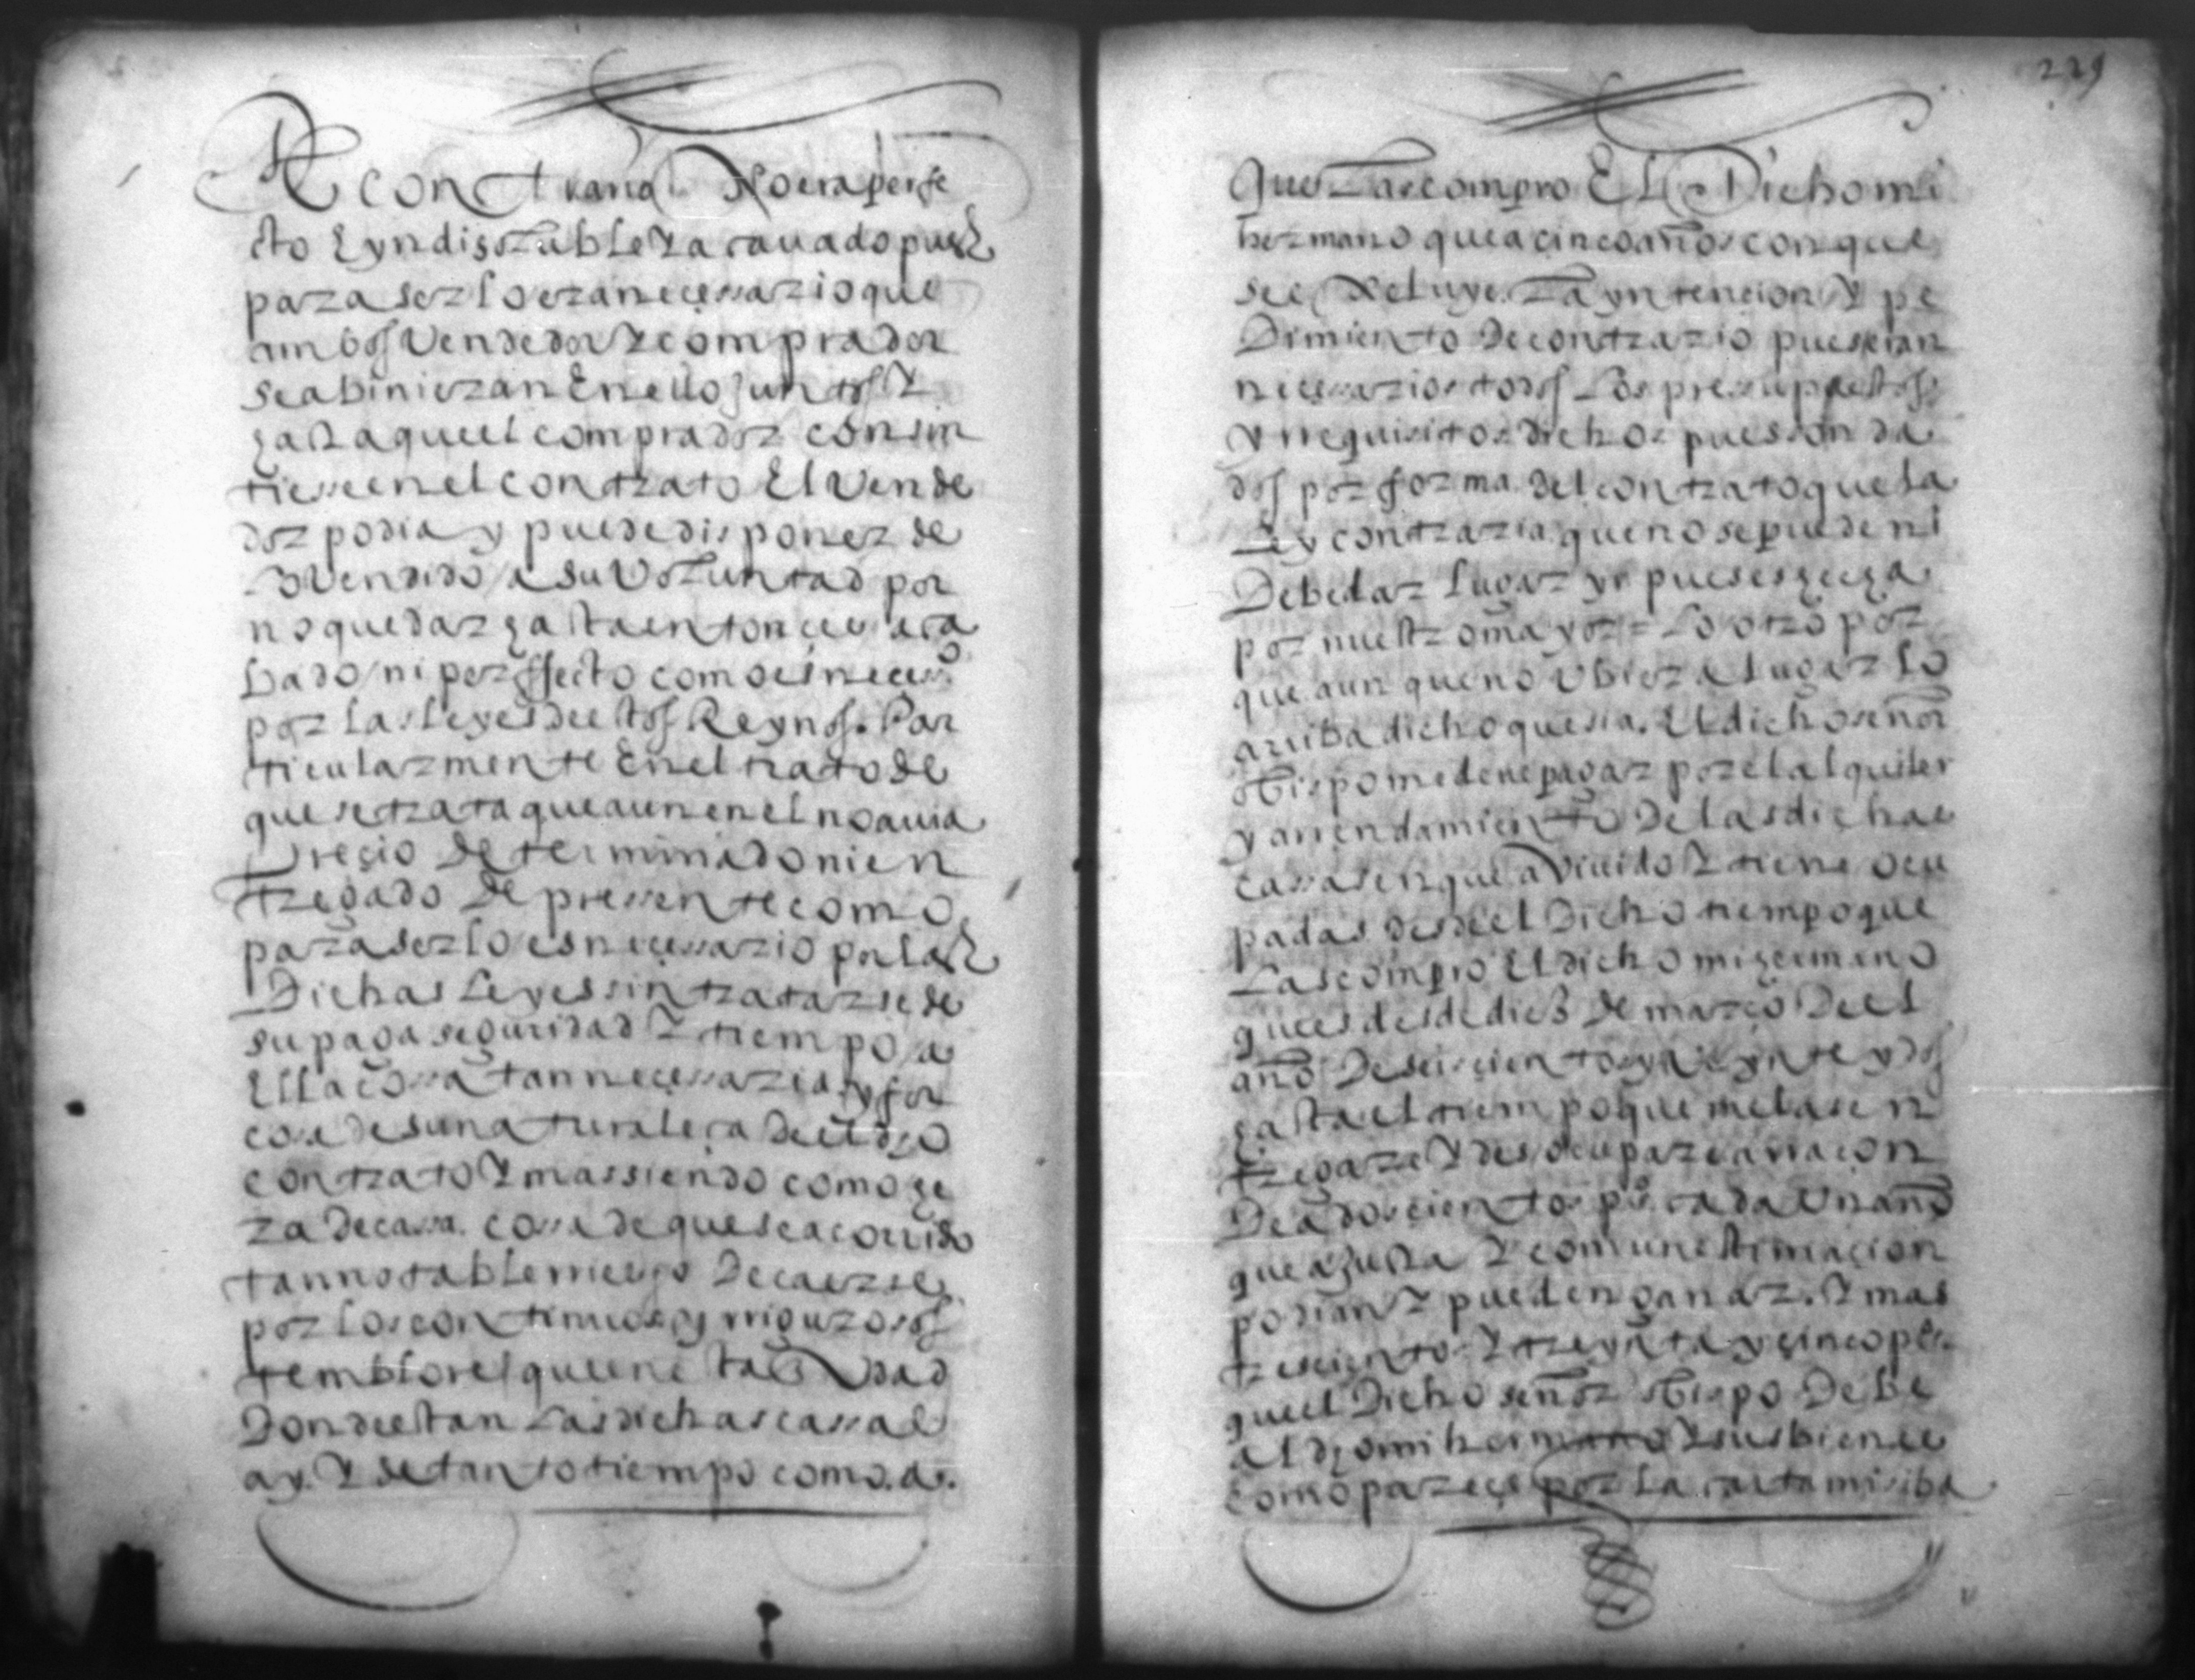 contrario no era perfe
cto E yndisoluble y acauado pues
para serlo era necessario que
ambos Vendedor y comprador
se abinieran En ello juntos y
hasta que el comprador consin
tiesse en el contrato El Vende
dor podia y puede disponer de
lo Vendido a su Voluntad por
no quedar hasta entonces aca
bado ni perffecto como es necesso
por las leyes de estos Reynos. Par
ticularmente En el trato de
que se trata que aun en el no auia
Precio determinado ni en
tregado de pressente como
para serlo es necessario por las
Dichas leyes sin tratarse de
su paga seguridad y tiempo a
Ella cossa tan necessaria y for
cosa de su naturaleça de el dho
contrato y mas siendo como he
ra de cassa. cossa de que sea corrido
tan notable riesgo De caerse
por los continuos y rrigurosos
temblores que en esta ciudad
Donde estan Las dichas cassas
ay. Y de tanto tiempo como. a.
229
Que Las compro El Dicho mi
hermano que a cinco años con que
se Excluye. La yntencion y pe
Dimiento De contrario pues eran
necessarios todos Los pressupuestos
y rrequisitos dichos pues son da
dos por forma del contrato que la
Ley contraria que no se puede ni
Debe dar lugar yr pues es hecha
por nuestro mayor = Lo otro por
que aun que no Ubiera lugar lo
arriba dicho que sia. El dicho señor
Obispo me deue pagar por el alquiler
y arrendamiento De las dichas
cassas en que a Viuido y tiene ocu
padas desde el Dicho tiempo que
Las compro El dicho mi hermano
que es desde dies de março De el
año De seiscientos y veynte y dos
hasta el tiempo que me las en
tregare y desocupare a rraçon
De a doscientos ps. cada Un año
que a justa y comun estimaçion
podian y pueden ganar. Y mas
trescientos y treynta y cinco ps.
que el Dicho señor Obispo Debe
al dho mi hermano y sus bienes
como pareçe por la carta misiba